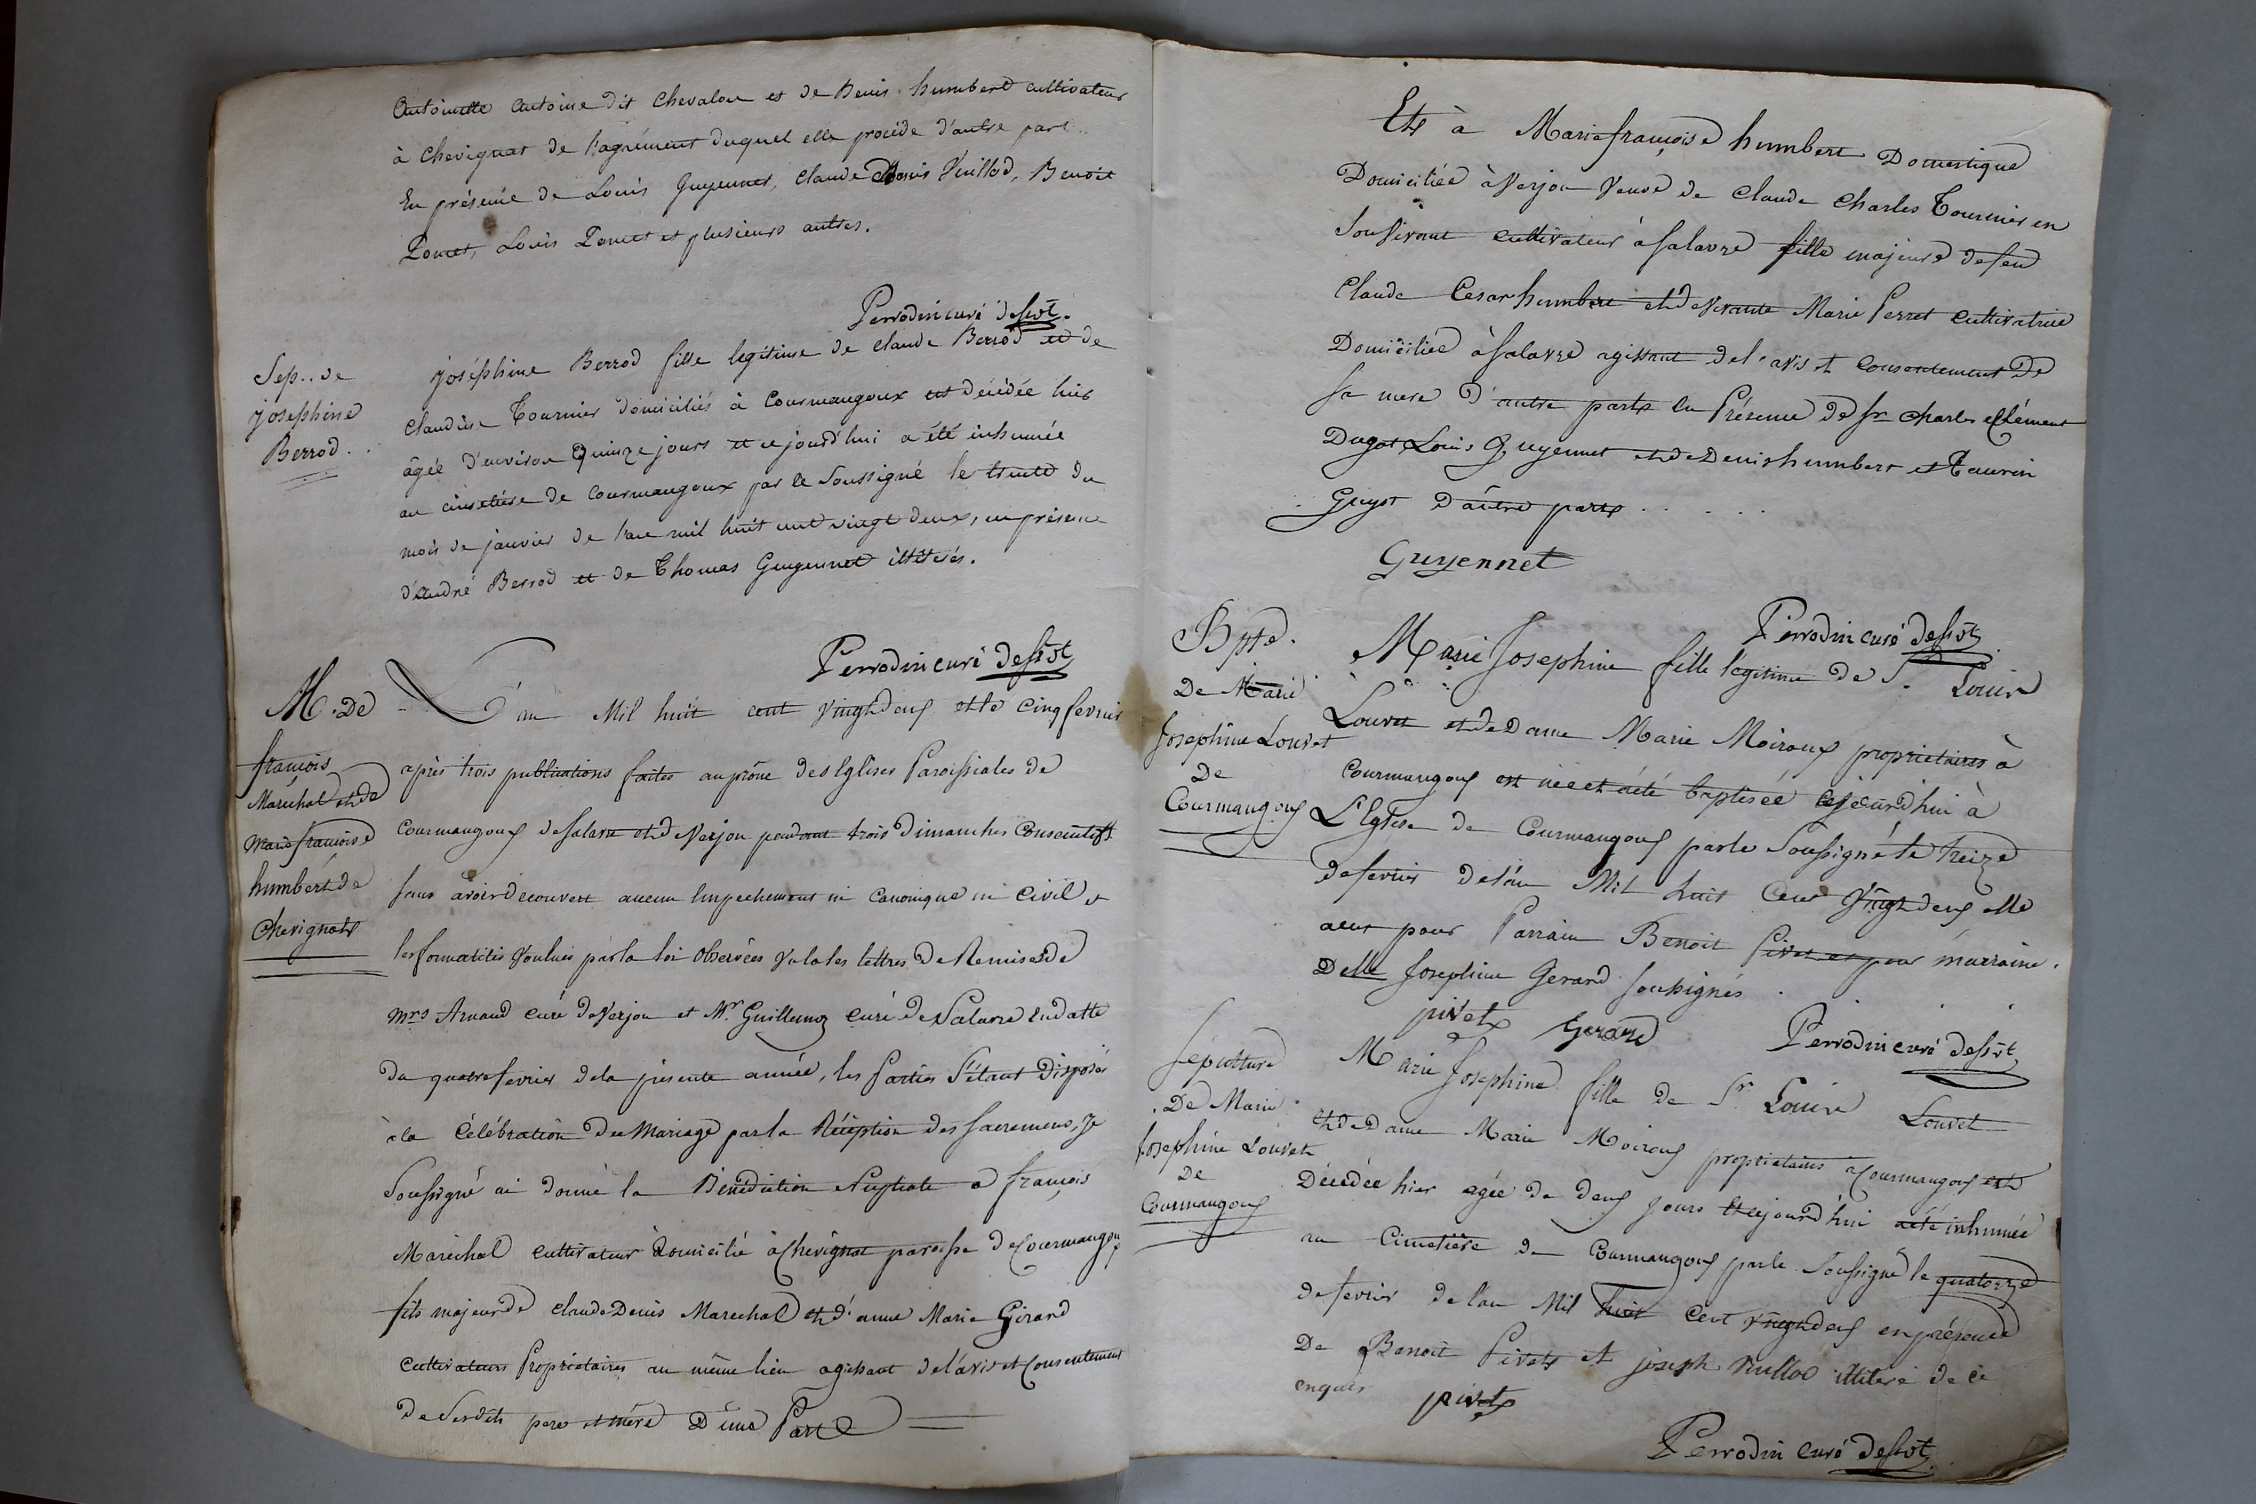 Antoinette Antoine dit Chevalon et de Denis humbert cultivateur
à Chevignat de l'agrément duquel elle procède d'autre part.
En présence de Louis Guyennet, Claude Denis Vuillod, Benoit
Poncet, Louis Poncet et plusieurs autres.
Perrodin curé dessvt.
Sep.. de
joséphine
Berrod..
joséphine Berrod fille légitime de claude Berrod et de
claudine Tournier domiciliés à Courmangoux est décédée hier
âgée d'environ quinze jours et cejourd'hui a été inhumée
au cimetière de Courmangoux par le Soussigné le trente du
mois de janvier de l'an mil huit cent vingt deux, en présence
d'andré Berrod et de Thomas Guyennet illitérés.
Perrodin curé dessvt
M. De
françois
Maréchal et de
marie françoise
humbert de
Chevignat
L'an Mil huit cent vingt deux et le cinq fevrier
après trois publications faites au prône des Eglises Paroissiales de
Courmangoux de Salavre et de Verjon pendant trois Dimanches Consecutifs
sans avoir decouvert aucun Empechement ni Canonique ni Civil et
les formalités Voulues par la loi Observées Vu les lettres De Remises de
mrs Arnaud curé de Verjon et Mr Guillemoz Curé De Salavre En datte
du quatre fevrier de la présente année, les Parties S'étant Disposées
à la Célébration Du Mariage par la Réception des Sacremens, Je
Soussigné ai donné la Bénédiction Nuptiale a françois
Maréchal cultivateur Domicilié à Chevignat paroisse de Courmangoux
fils majeur de claude Denis Marechal et d'anne Marie Girard
Cultivateurs Propriétaires au même lieu agissant de l'avis et Consentement
De Sesdits pere et mère D'une Part
Et à Marie françoise humbert Domestique
Domiciliée à Verjon Veuve de Claude Charles Tournier en
Son Vivant cultivateur à Salavre fille majeure de feu
Claude Cesar humbert et de Vivante Marie Perret Cultivatrice
Domiciliée à Salavre agissant de l'avis et Consentement De
Sa mere D'autre part En Présence De Sr Charles Clément
Dugat Louis Guyennet et de Denis humbert et Taurin
Guyot D'autre part . . . . .
Guyennet
Perrodin curé dessvt
Bpte.
De Marie
Josephine Louvet
De
Courmangoux
Marie Josephine fille légitime de Sr Louis
Louvet et de Dame Marie Moiroux propriétaires à
Courmangoux est née et a été baptisée cejourd'hui à
L'Eglise de Courmangoux par le Soussigné le treize
de fevrier de l'an Mil huit Cent Vingt deux elle
a eu pour Parrain Benoit Pivet et pour marraine
Delle Josephine Gerard soussignés.
pivet Gerard
Perrodin curé dessvt
Sépulture
De Marie
Josephine Louvet
De
Courmangoux
Marie Josephine fille de Sr Louis Louvet
et de Dame Marie Moiroux propriétaires à Courmangoux est
Décédée hier agée de deux jours et cejourd'hui a été inhumée
au Cimetière de Courmangoux par le Soussigné le quatorze
de fevrier de l'an Mil huit Cent Vingt deux en présence
De Benoit Pivet et joseph Vuillod illiteré de ce
enquis
pivet
Perrodin curé dessvt